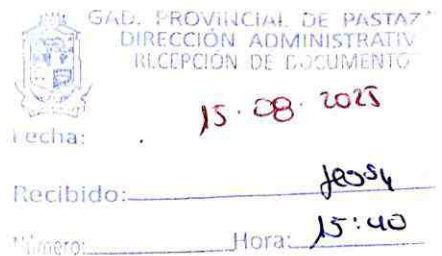 GAD. PROVINCIAL DE PASTAZ
DIRECCIÓN ADMINISTRATIV
RECEPCIÓN DE DOCUMENTO
Fecha: 15.08.2025
Recibido:
Número: Hora: 15:40